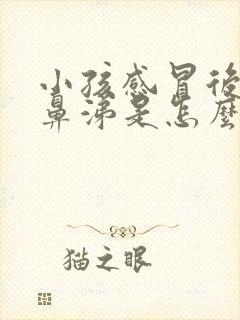 小孩感冒後
鼻涕是怎麼
猫之眼